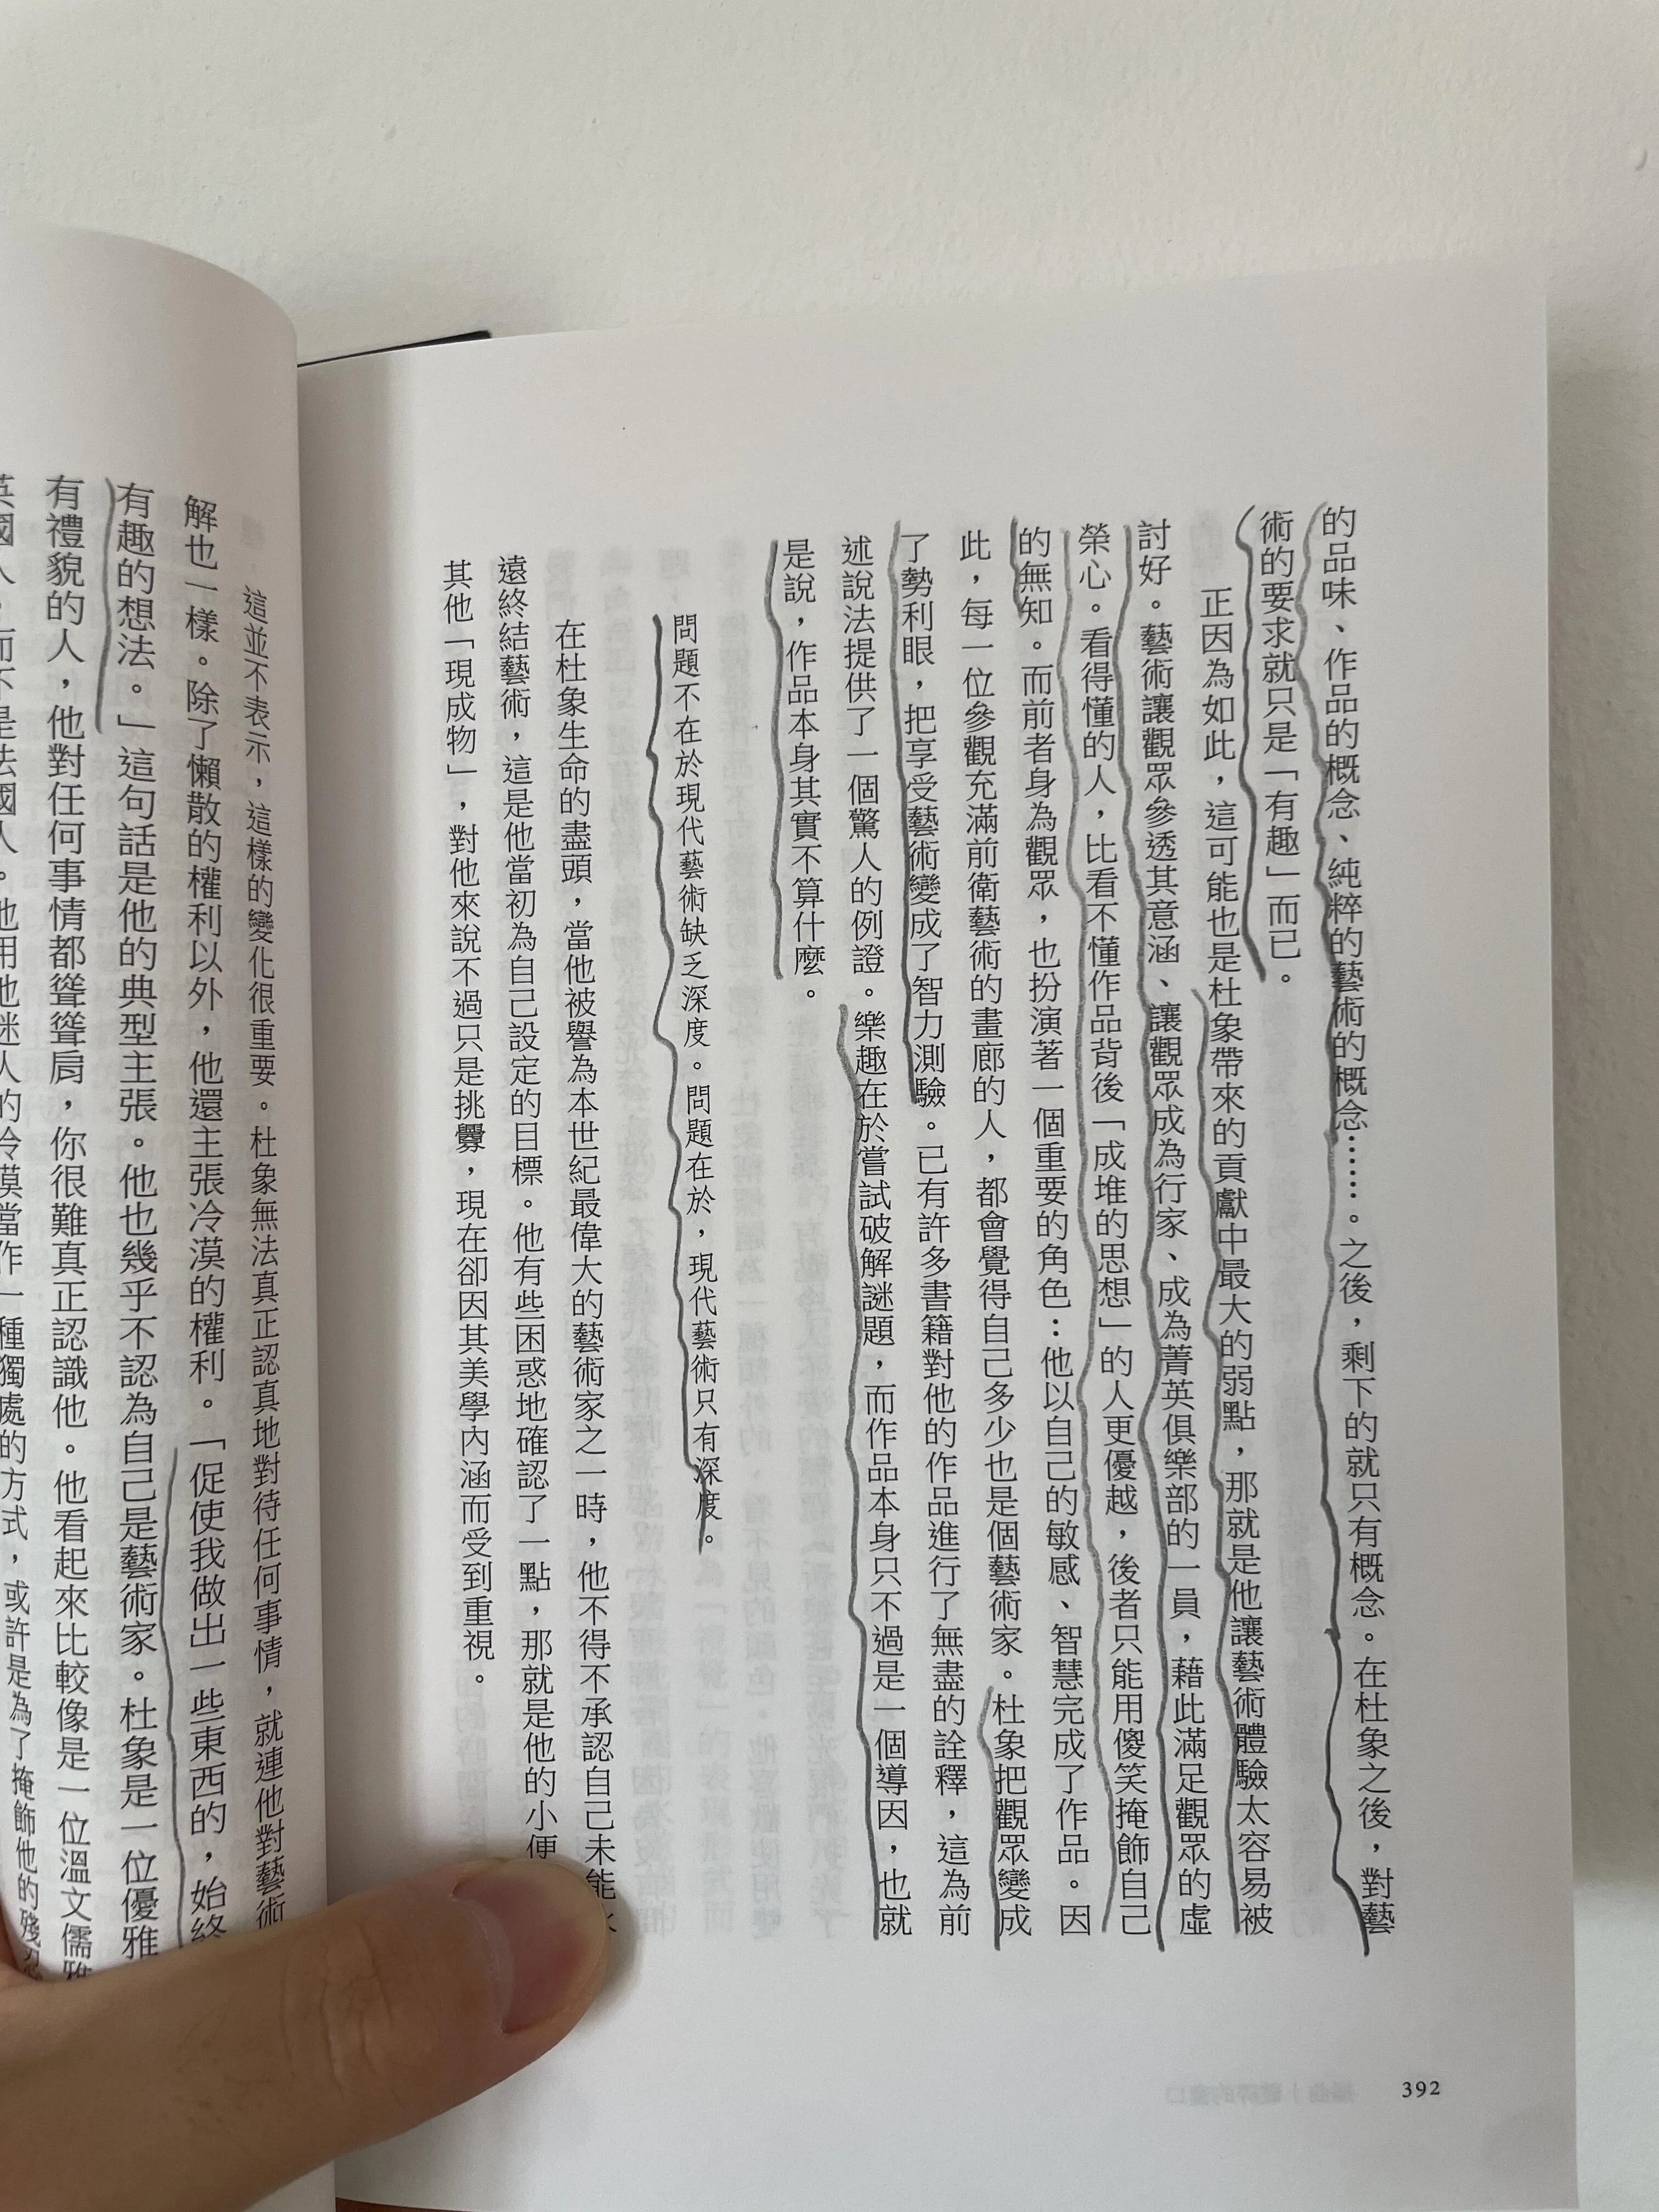 的品味、作品的概念、純粹的藝術的概念……。之後,剩下的就只有概念。在杜象之後,對藝
術的要求就只是「有趣」而已。
正因為如此,這可能也是杜象帶來的貢獻中最大的弱點,那就是他讓藝術體驗太容易被
討好。藝術讓觀眾參透其意涵、讓觀眾成為行家、成為菁英俱樂部的一員,藉此滿足觀眾的虛
榮心。看得懂的人,比看不懂作品背後「成堆的思想」的人更優越,後者只能用傻笑掩飾自己
的無知。而前者身為觀眾,也扮演著一個重要的角色:他以自己的敏感、智慧完成了作品。因
此,每一位參觀充滿前衛藝術的畫廊的人,都會覺得自己多少也是個藝術家。杜象把觀眾變成
了勢利眼,把享受藝術變成了智力測驗。已有許多書籍對他的作品進行了無盡的詮釋,這為前
述說法提供了一個驚人的例證。樂趣在於嘗試破解謎題,而作品本身只不過是一個導因,也就
是說,作品本身其實不算什麼。
問題不在於現代藝術缺乏深度。問題在於,現代藝術只有深度。
在杜象生命的盡頭,當他被譽為本世紀最偉大的藝術家之一時,他不得不承認自己未能
遠終結藝術,這是他當初為自己設定的目標。他有些困惑地確認了一點,那就是他的小便
其他「現成物」,對他來說不過只是挑釁,現在卻因其美學內涵而受到重視。
392
這並不表示,這樣的變化很重要。杜象無法真正認真地對待任何事情,就連他對藝術
解也一樣。除了懶散的權利以外,他還主張冷漠的權利。「促使我做出一些東西的,始終
有趣的想法。」這句話是他的典型主張。他也幾乎不認為自己是藝術家。杜象是一位優雅
有禮貌的人,他對任何事情都聳聳肩,你很難真正認識他。他看起來比較像是一位溫文儒雅
英國人,而不是法國人。他用他迷人的冷漠當作一種獨處的方式,或許是為了掩飾他的殘